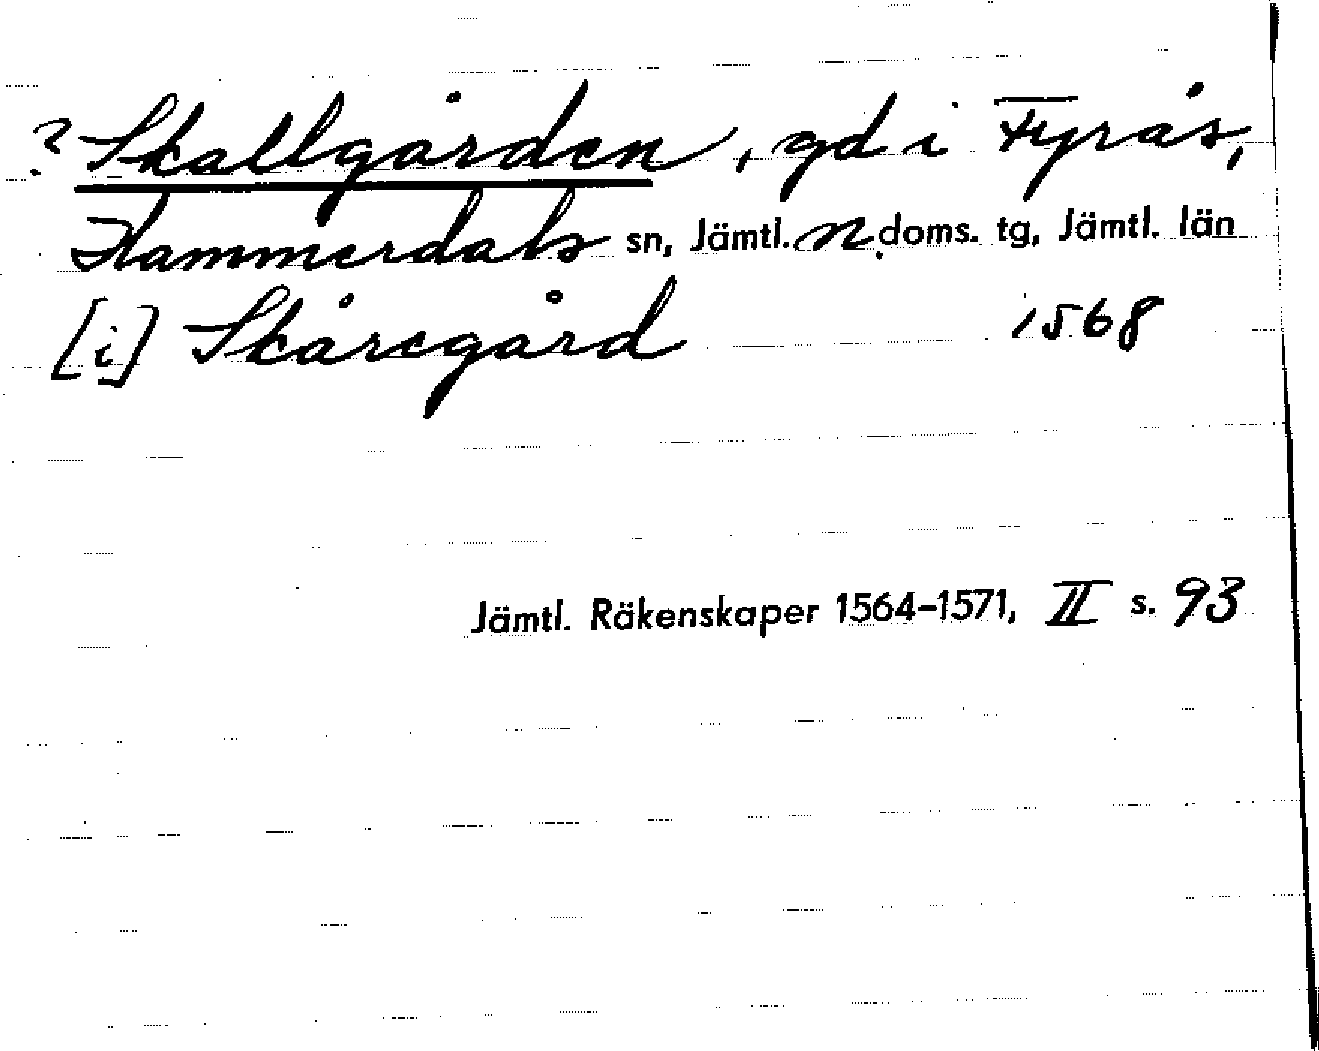 ? Skallgården, gd i Fyrås,
Hammerdals sn, Jämtl. n. doms. tg, Jämtl. län
[i] Skåregård 1568
Jämtl. Räkenskaper 1564-1571, II s. 93